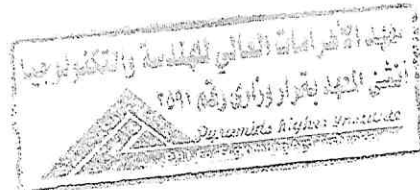 معهد الأهرامات العالي للهندسة والتكنولوجيا
أنشئ المعهد بقرار وزاري رقم ٢٥٩١
Pyramids Higher Institute